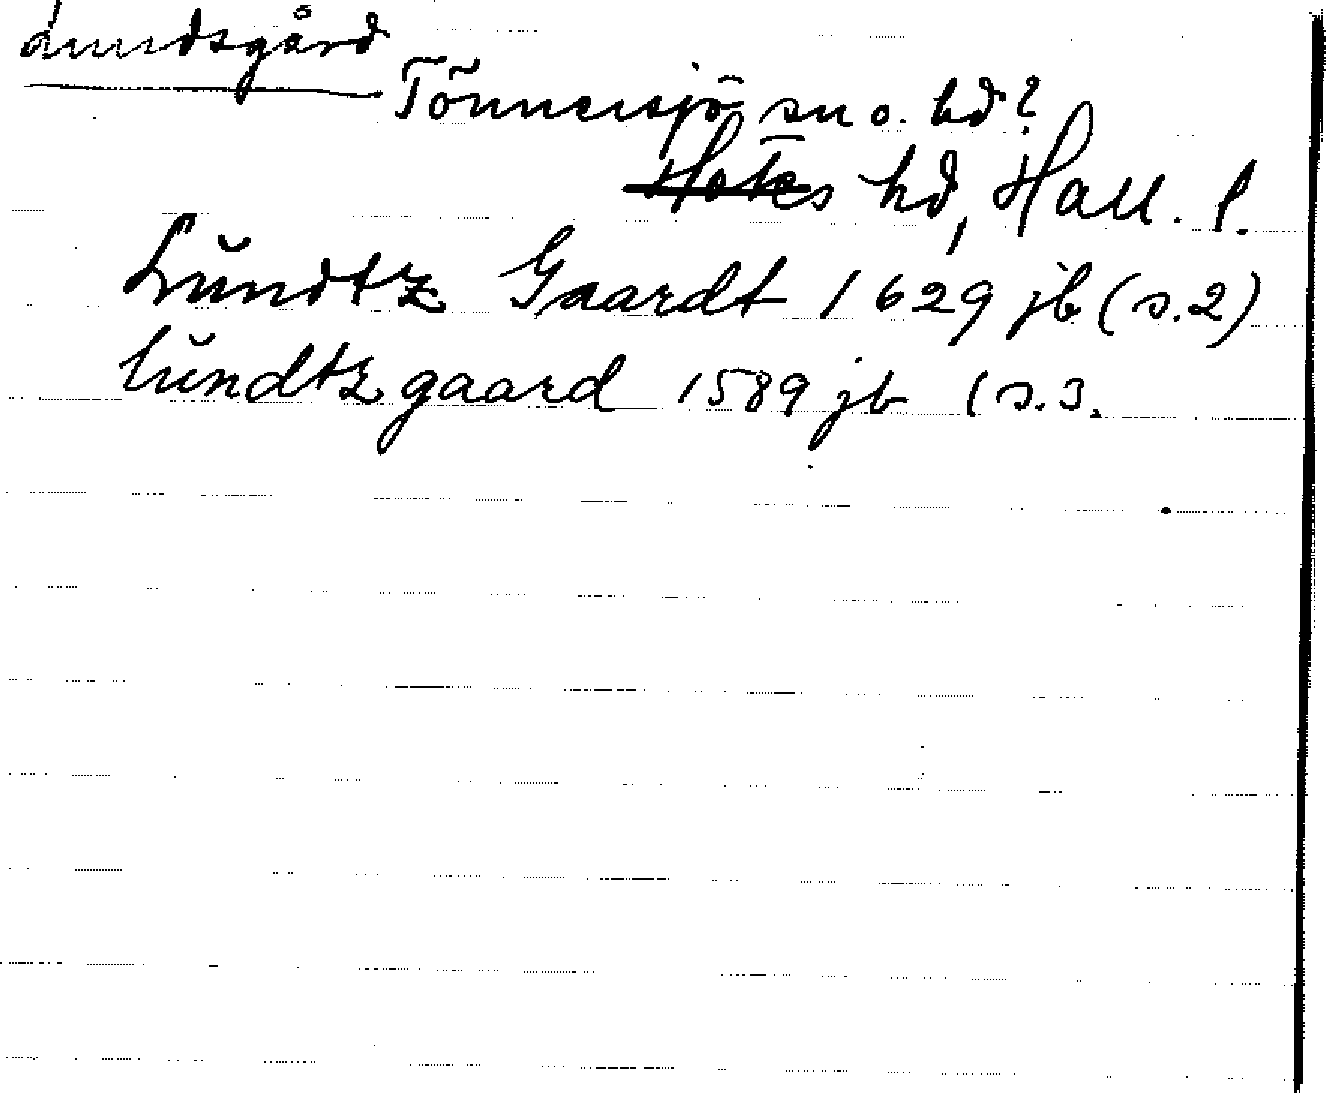 Lundsgård
Tönnersjö sn o. hd?
Höks hd, Hall. l.
Lundtz Gaardt 1629 jb (s.2)
lundtzgaard 1589 jb (s.3.